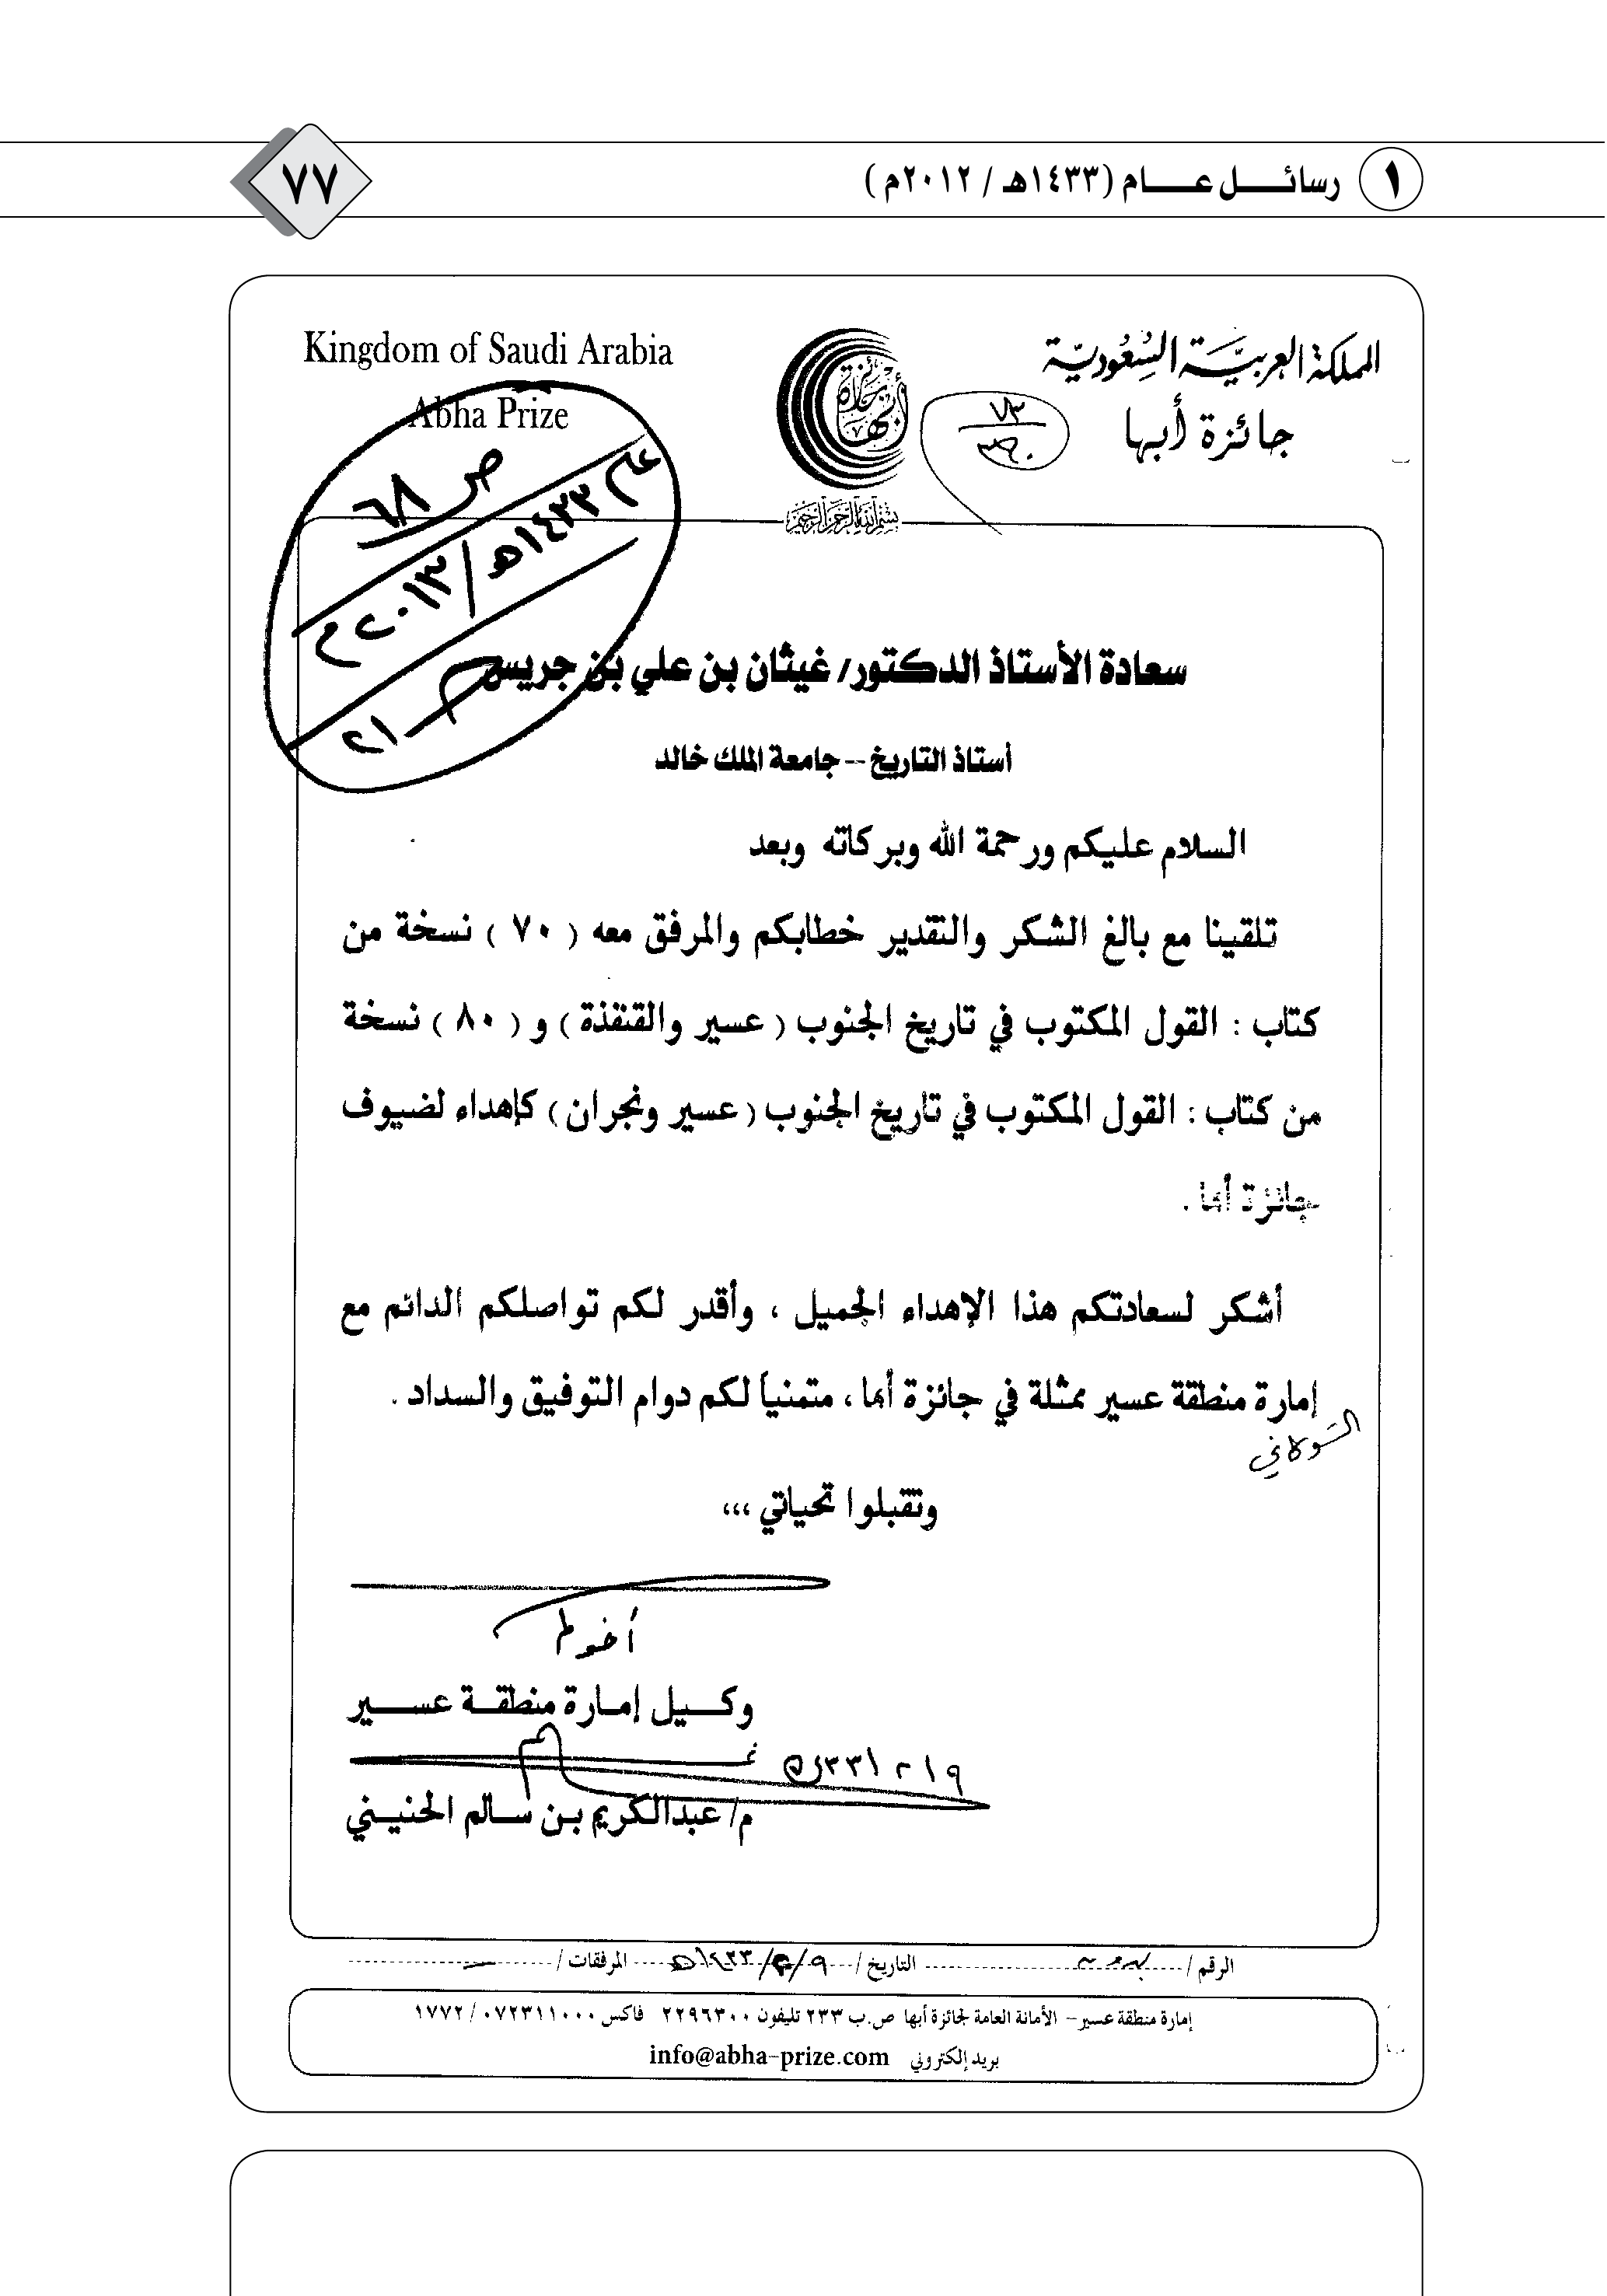 ١ رسائـــل عـــام (١٤٣٣هـ / ٢٠١٢م)
٧٧
المملكة العربيّة السعوديّة
جائزة أبها
Kingdom of Saudi Arabia
Abha Prize
جائزة أبها
بسم الله الرحمن الرحيم
ص ٦٨
عام ١٤٣٣هـ / ٢٠١٣م
٢١
سعادة الأستاذ الدكتور/ غيثان بن علي بن جريس
أستاذ التاريخ -- جامعة الملك خالد
السلام عليكم ورحمة الله وبركاته وبعد
تلقينا مع بالغ الشكر والتقدير خطابكم والمرفق معه ( ٧٠ ) نسخة من
كتاب : القول المكتوب في تاريخ الجنوب ( عسير والقنفذة ) و ( ٨٠ ) نسخة
من كتاب : القول المكتوب في تاريخ الجنوب ( عسير ونجران ) كإهداء لضيوف
جائزة أبها .
أشكر لسعادتكم هذا الإهداء الجميل ، وأقدر لكم تواصلكم الدائم مع
إمارة منطقة عسير ممثلة في جائزة أبها ، متمنياً لكم دوام التوفيق والسداد .
وتقبلوا تحياتي ،،،
أخوكم
وكـــيل إمـارة منطقـــة عســـير
م/ عبدالكريم بـن سـالم الحنيـني
الرقم / التاريخ / ٩ / ٣ / ١٤٣٣هـ المرفقات /
إمارة منطقة عسير - الأمانة العامة لجائزة أبها ص.ب ٢٣٣ تليفون ٢٢٩٦٣٠٠ فاكس ٠٧٢٣١١٠٠٠ / ١٧٧٢
بريد إلكتروني info@abha-prize.com